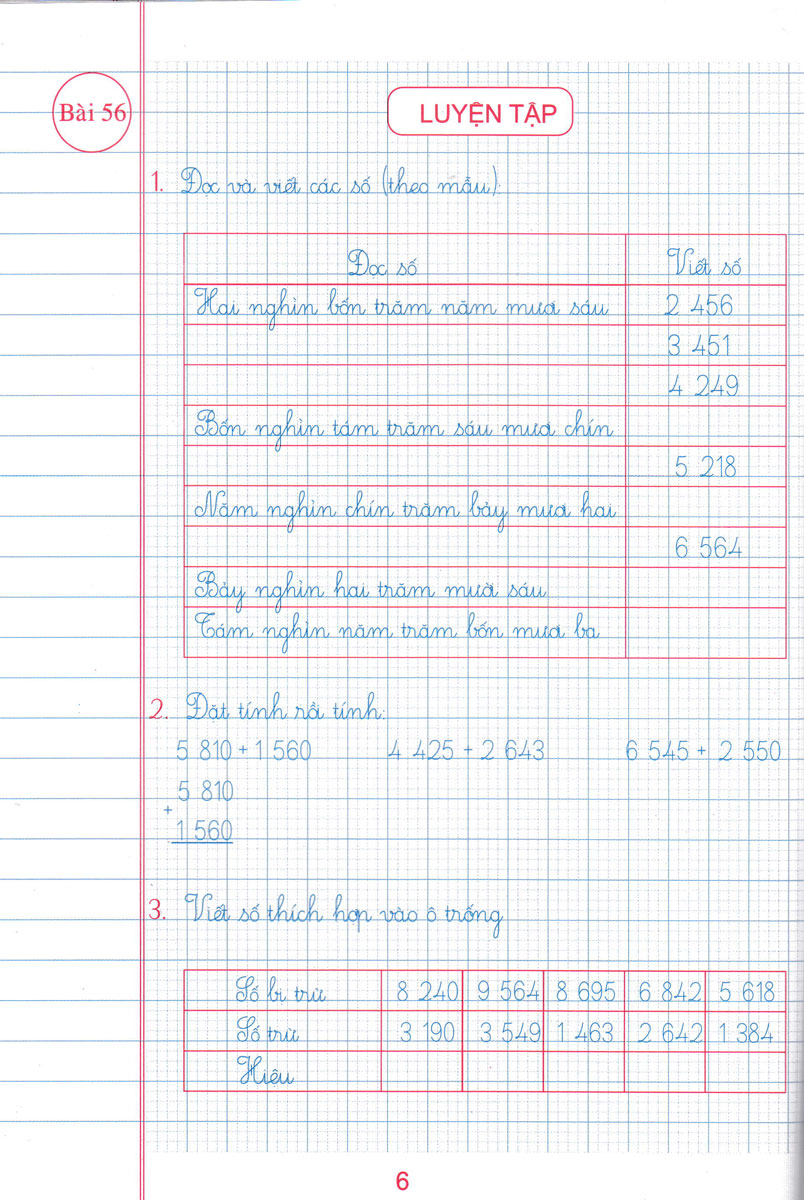 Bài 56
LUYỆN TẬP
1. Đọc và viết các số (theo mẫu):
Đọc số Viết số
Hai nghìn bốn trăm năm mươi sáu 2 456
3 451
4 249
Bốn nghìn tám trăm sáu mươi chín
5 218
Năm nghìn chín trăm bảy mươi hai
6 564
Bảy nghìn hai trăm mười sáu
Tám nghìn năm trăm bốn mươi ba
2. Đặt tính rồi tính:
5 810 + 1 560 4 425 + 2 643 6 545 + 2 550
5 810
+
1 560
3. Viết số thích hợp vào ô trống
Số bị trừ 8 240 9 564 8 695 6 842 5 618
Số trừ 3 190 3 549 1 463 2 642 1 384
Hiệu
6